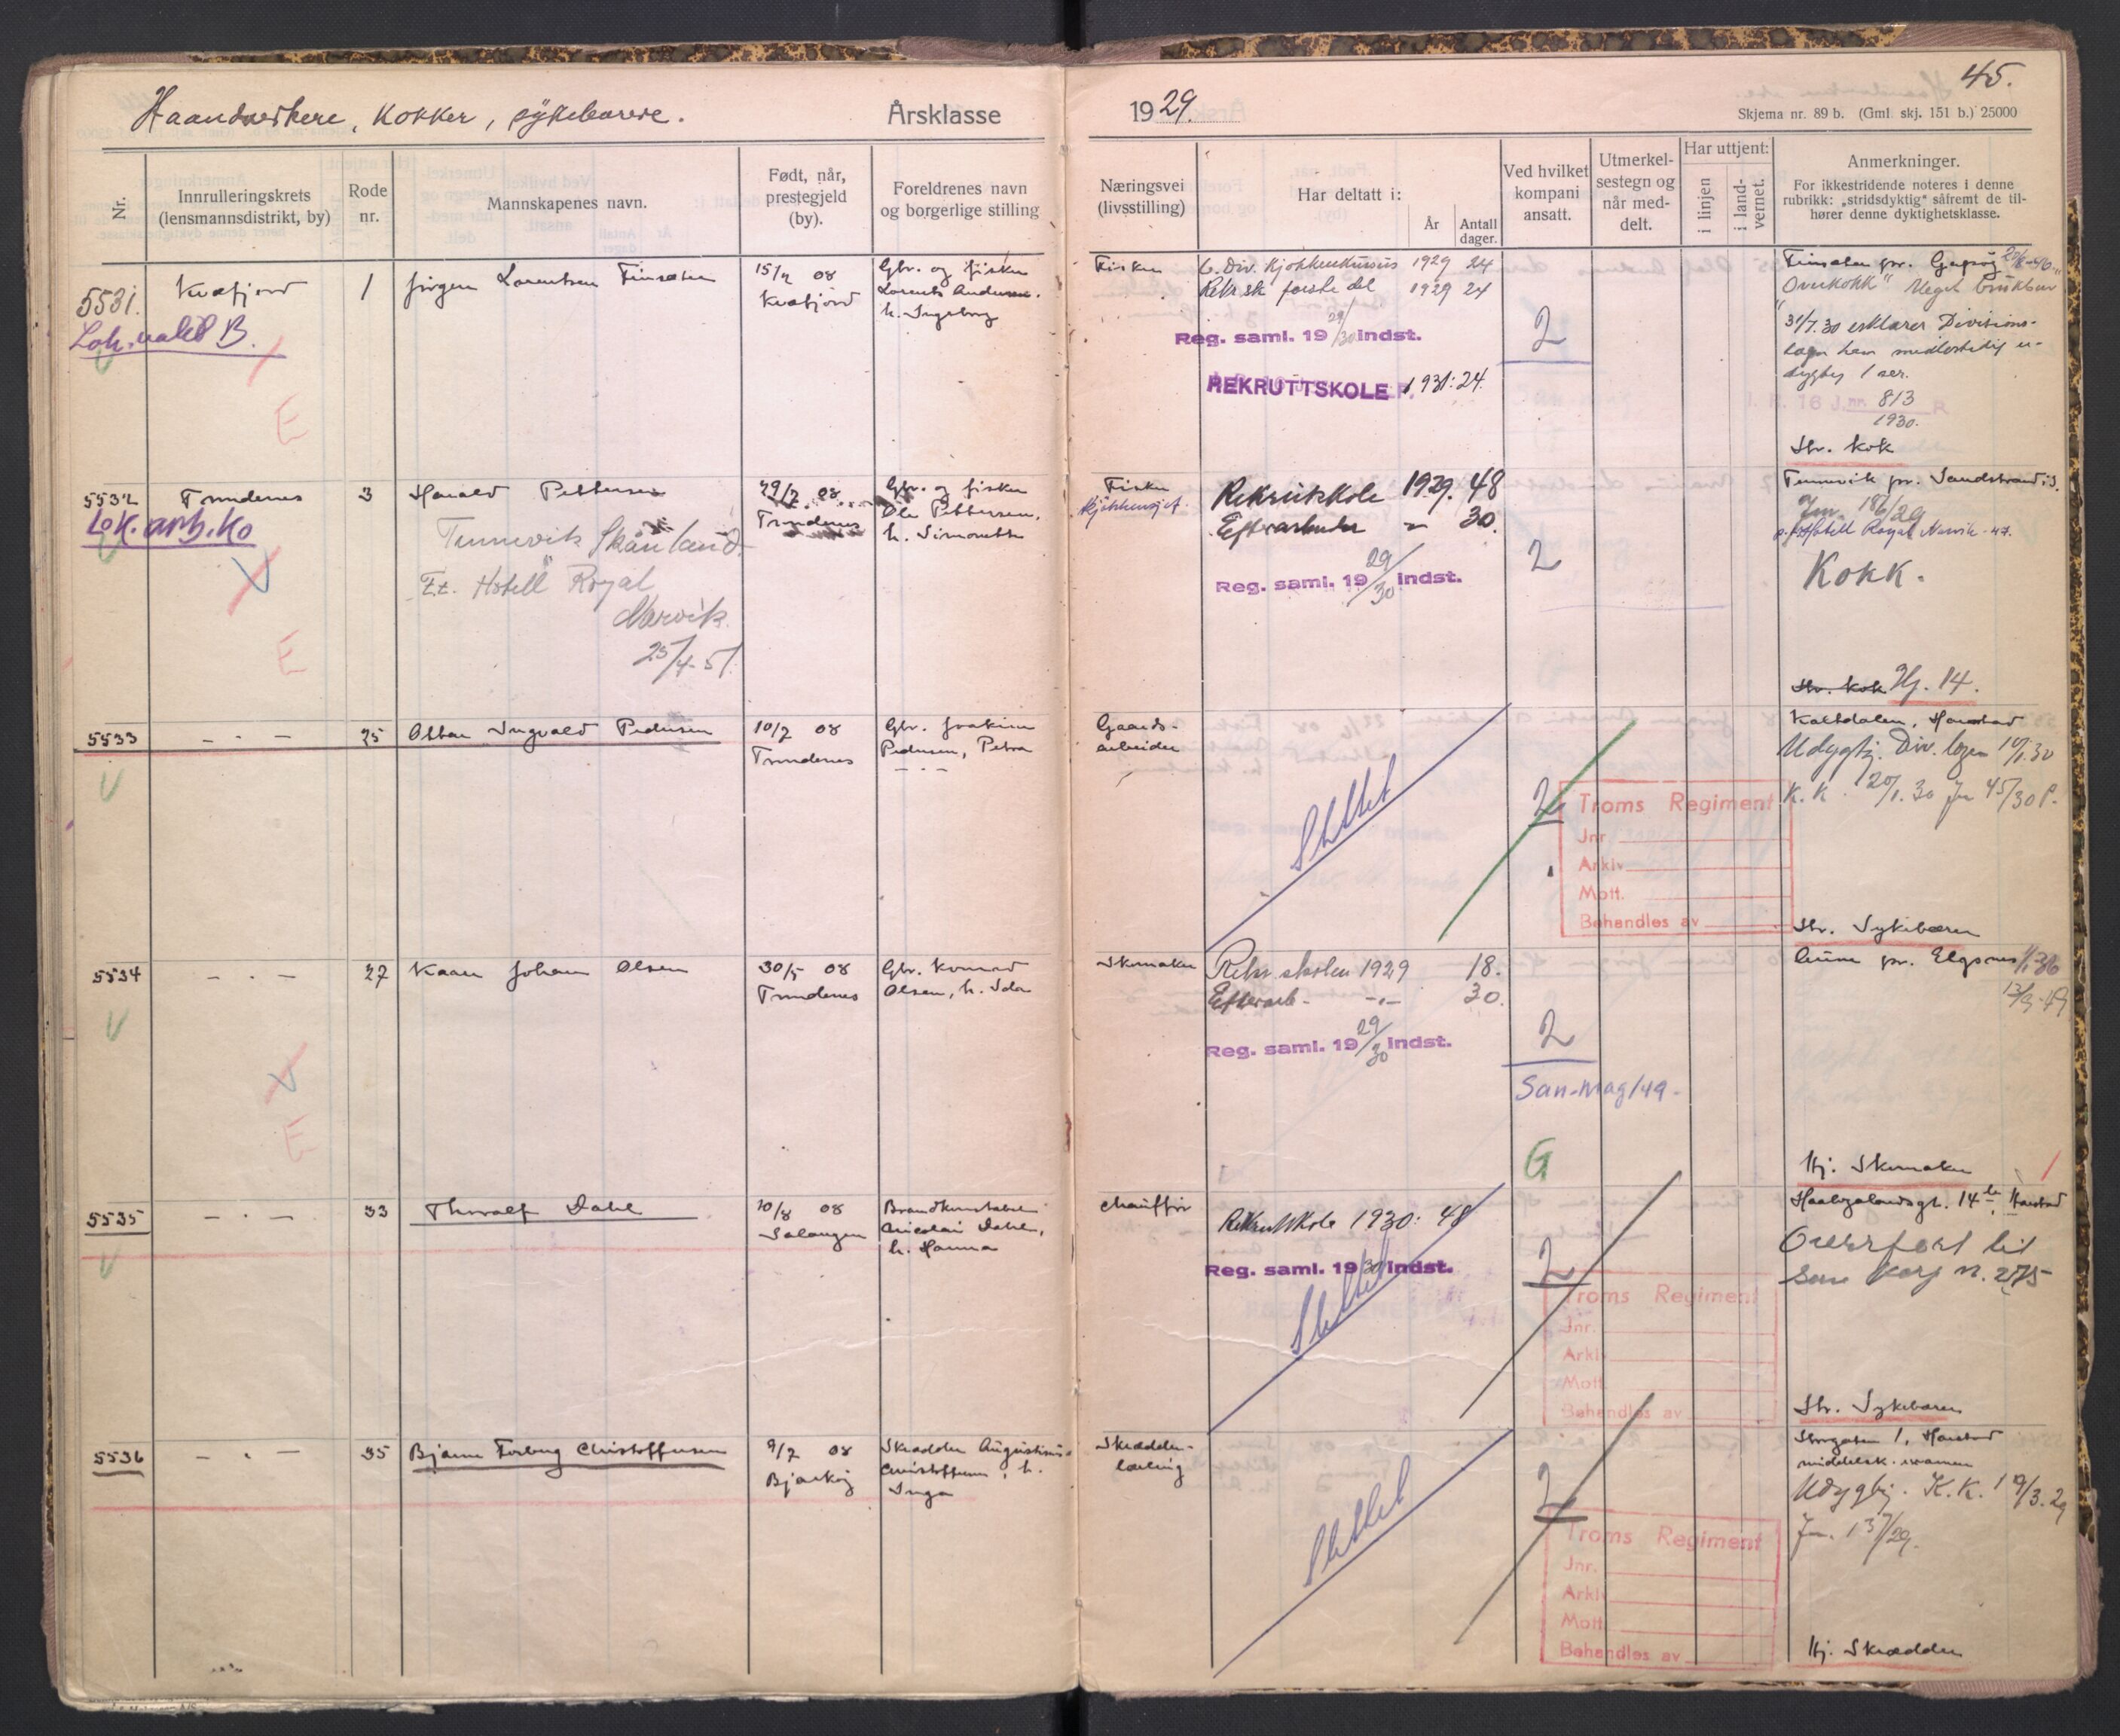 Haandverkere, Kokker, sykebærere.
Årsklasse
1929.
45.
Skjema nr. 89 b. (Gml. skj. 151 b.) 25000
Nr.
Innrulleringskrets
(lensmannsdistrikt, by)
Rode
nr.
Mannskapenes navn.
Født, når,
prestegjeld
(by).
Foreldrenes navn
og borgerlige stilling
Næringsvei
(livsstilling)
Har deltatt i:
År
Antall
dager.
Ved hvilket
kompani
ansatt.
Utmerkel-
sestegn og
når med-
delt.
Har uttjent:
i linjen
i land-
vernet.
Anmerkninger.
For ikkestridende noteres i denne
rubrikk: „stridsdyktig“ såfremt de til-
hører denne dyktighetsklasse.
5531.
Kvæfjord
1
Jørgen Lorentsen Finsæter
08
Kvæfjord
Gbr. og fisker
Lorents Andersen.
h. Ingeborg
Lok.vakt B.
E
Fisker
6. Div. Kjøkkenkursus 1929 24
Rekr.sk første del 1929 24
Reg. saml. 19 29/30 indst.
REKRUTTSKOLE 1931: 24.
2
"Overkokk" Meget brukbar
31/7.30 erklærer Divisions-
lægen ham midlertidig u-
dygtig 1 aar.
I. R. 16 J.nr. 813
1930.
Str. kok
5532
Trondenes
3
Harald Pettersen
29/7 08
Trondenes
Gbr. og fisker
Ole Pettersen,
h. Simonette
Lok.arb.Ko
Tennevik Skånland
Hotell Royal
Narvik.
25/4-51.
E
Fisker
Rekrutskole 1929. 48
Efterarbeider " 30.
Reg. saml. 19 29/30 indst.
2
Tennevik pr. Sandstrand
Jnr. 186/29
Hotell Royal Narvik - 47.
Kokk.
Str. kok Hj. 14.
5533
- . -
25
Ottar Ingvald Pedersen
10/7 08
Trondenes
Gbr. Joakim
Pedersen, Petra
- . -
Gaards-
arbeider
Slettet
2
Troms Regiment
Jnr
Arkiv
Mott.
Behandles av
Kaltdalen, Harstad
Udygtig. Div. legen 10/1.30
K. K. 20/1.30 Jnr 45/30 P.
Str. Sykebærer
5534
- . -
27
Kaare Johan Olsen
30/5 08
Trondenes
Gbr. Konrad
Olsen, h. Ida
E
Skomaker
Rekr.skolen 1929 18.
Efterarb. -"- 30.
Reg. saml. 19 29/30 indst.
2
San-mag/49-
G
Aune pr. Elgsnes
Hj. Skomaker
5535
- . -
33
Thoralf Dahl
10/8 08
Salangen
Brandkonstabel
Nicolai Dahl,
h. Hanna
Chauffør
Rekrutskole 1930: 48
Reg. saml. 19 30 indst.
Slettet
2
Troms Regiment
Jnr.
Arkiv
Mott
Behandles av
Haalogalandsgt. 14 b, Harstad
Overført til
San Korp n. 275
Str. Sykebærer
5536
- . -
35
Bjarne Forberg Christoffersen
9/7 08
Bjarkøy
Skrædder Augustinus
Christoffersen, h.
Inga
Skrædder-
lærling
Slettet
2
Troms Regiment
Jnr.
Arkiv
Mott
Behandles av
Storgaten 1, Harstad
middelsk. examen
Udygtig. K.K. 19/3.29
Jnr. 137/29.
Hj. Skrædder